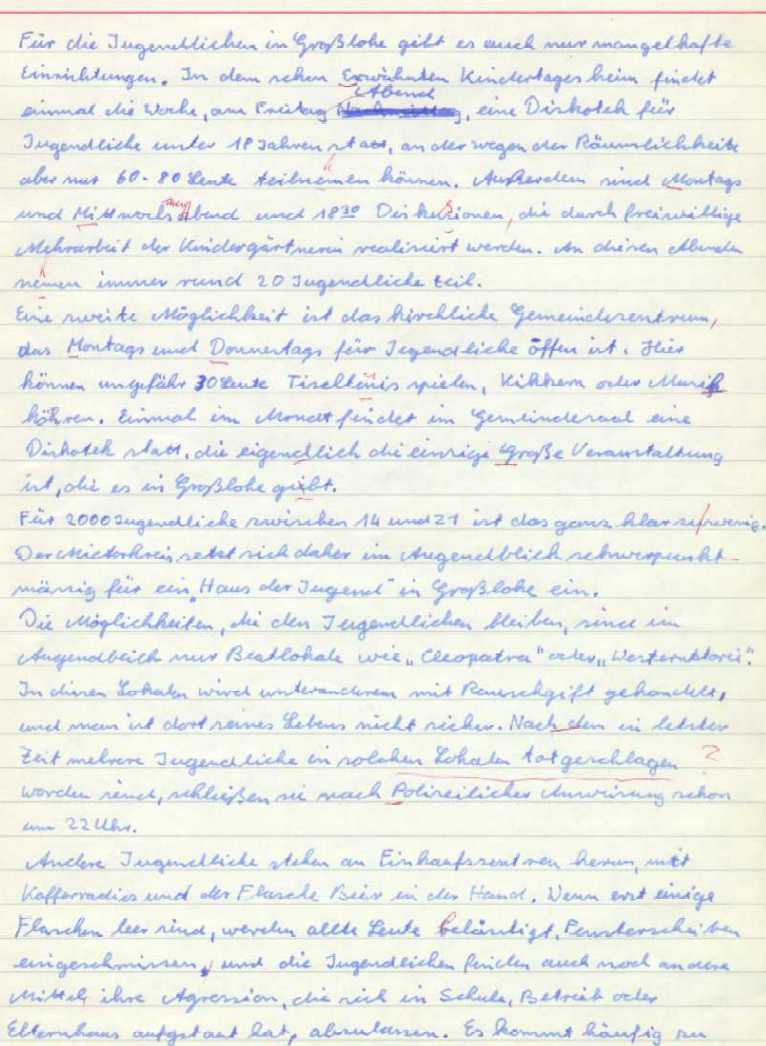 Für die Jugendlichen in Großlohe gibt es auch nur mangelhafte
Einrichtungen. In dem schon Erwähnten Kindertagesheim findet
Abend
einmal die Woche, am Freitag Nachmittag, eine Diskotek für
Jugendliche unter 18 Jahren statt, an der wegen der Räumlichkeite
aber nur 60-80 Leute teilnemen können. Außerdem sind Montags
und Mittwochsabend und 18³⁰ Diskusionen, die durch freiwillige
Mehrarbeit der Kindergärtnerin realisiert werden. An diesen Abenden
nemen immer rund 20 Jugendliche teil.
Eine zweite Möglichkeit ist das kirchliche Gemeindezentrum,
das Montags und Donnertags für Jugendliche öffen ist. Hier
können ungefähr 30 Leute Tischtenis spielen, Kikkern oder Musik
höhren. Einmal im Monat findet im Gemeindesaal eine
Diskotek statt, die eigendlich die einzige Große Veranstaltung
ist, die es in Großlohe giebt.
Für 2000 Jugendliche zwischen 14 und 21 ist das ganz klar zu wenig.
Der Mieterkreis setzt sich daher im Augendblick schwerpunkt-
mässig für ein „Haus der Jugend" in Großlohe ein.
Die Möglichkeiten, die den Jugendlichen bleiben, sind im
Augendblick nur Beatlokale wie „Cleopatra" oder „Westernstorei".
In diesen Lokalen wird unteranderem mit Rauschgift gehandelt,
und man ist dort seines Lebens nicht sicher. Nach dem in letzter
Zeit mehrere Jugendliche in solchen Lokalen totgeschlagen ?
worden sind, schließen sie nach Polizeilicher Anweisung schon
um 22 Uhr.
Andere Jugendliche stehen an Einkaufszentren herum, mit
Kofferradios und der Flasche Bier in der Hand. Wenn erst einige
Flaschen leer sind, werden allte Leute belästigt, Fensterscheiben
eingeschmissen, und die Jugendlichen finden auch noch andere
Mittel, ihre Agression, die sich in Schule, Betrieb oder
Elternhaus aufgstaut hat, abzulassen. Es kommt häufig zu